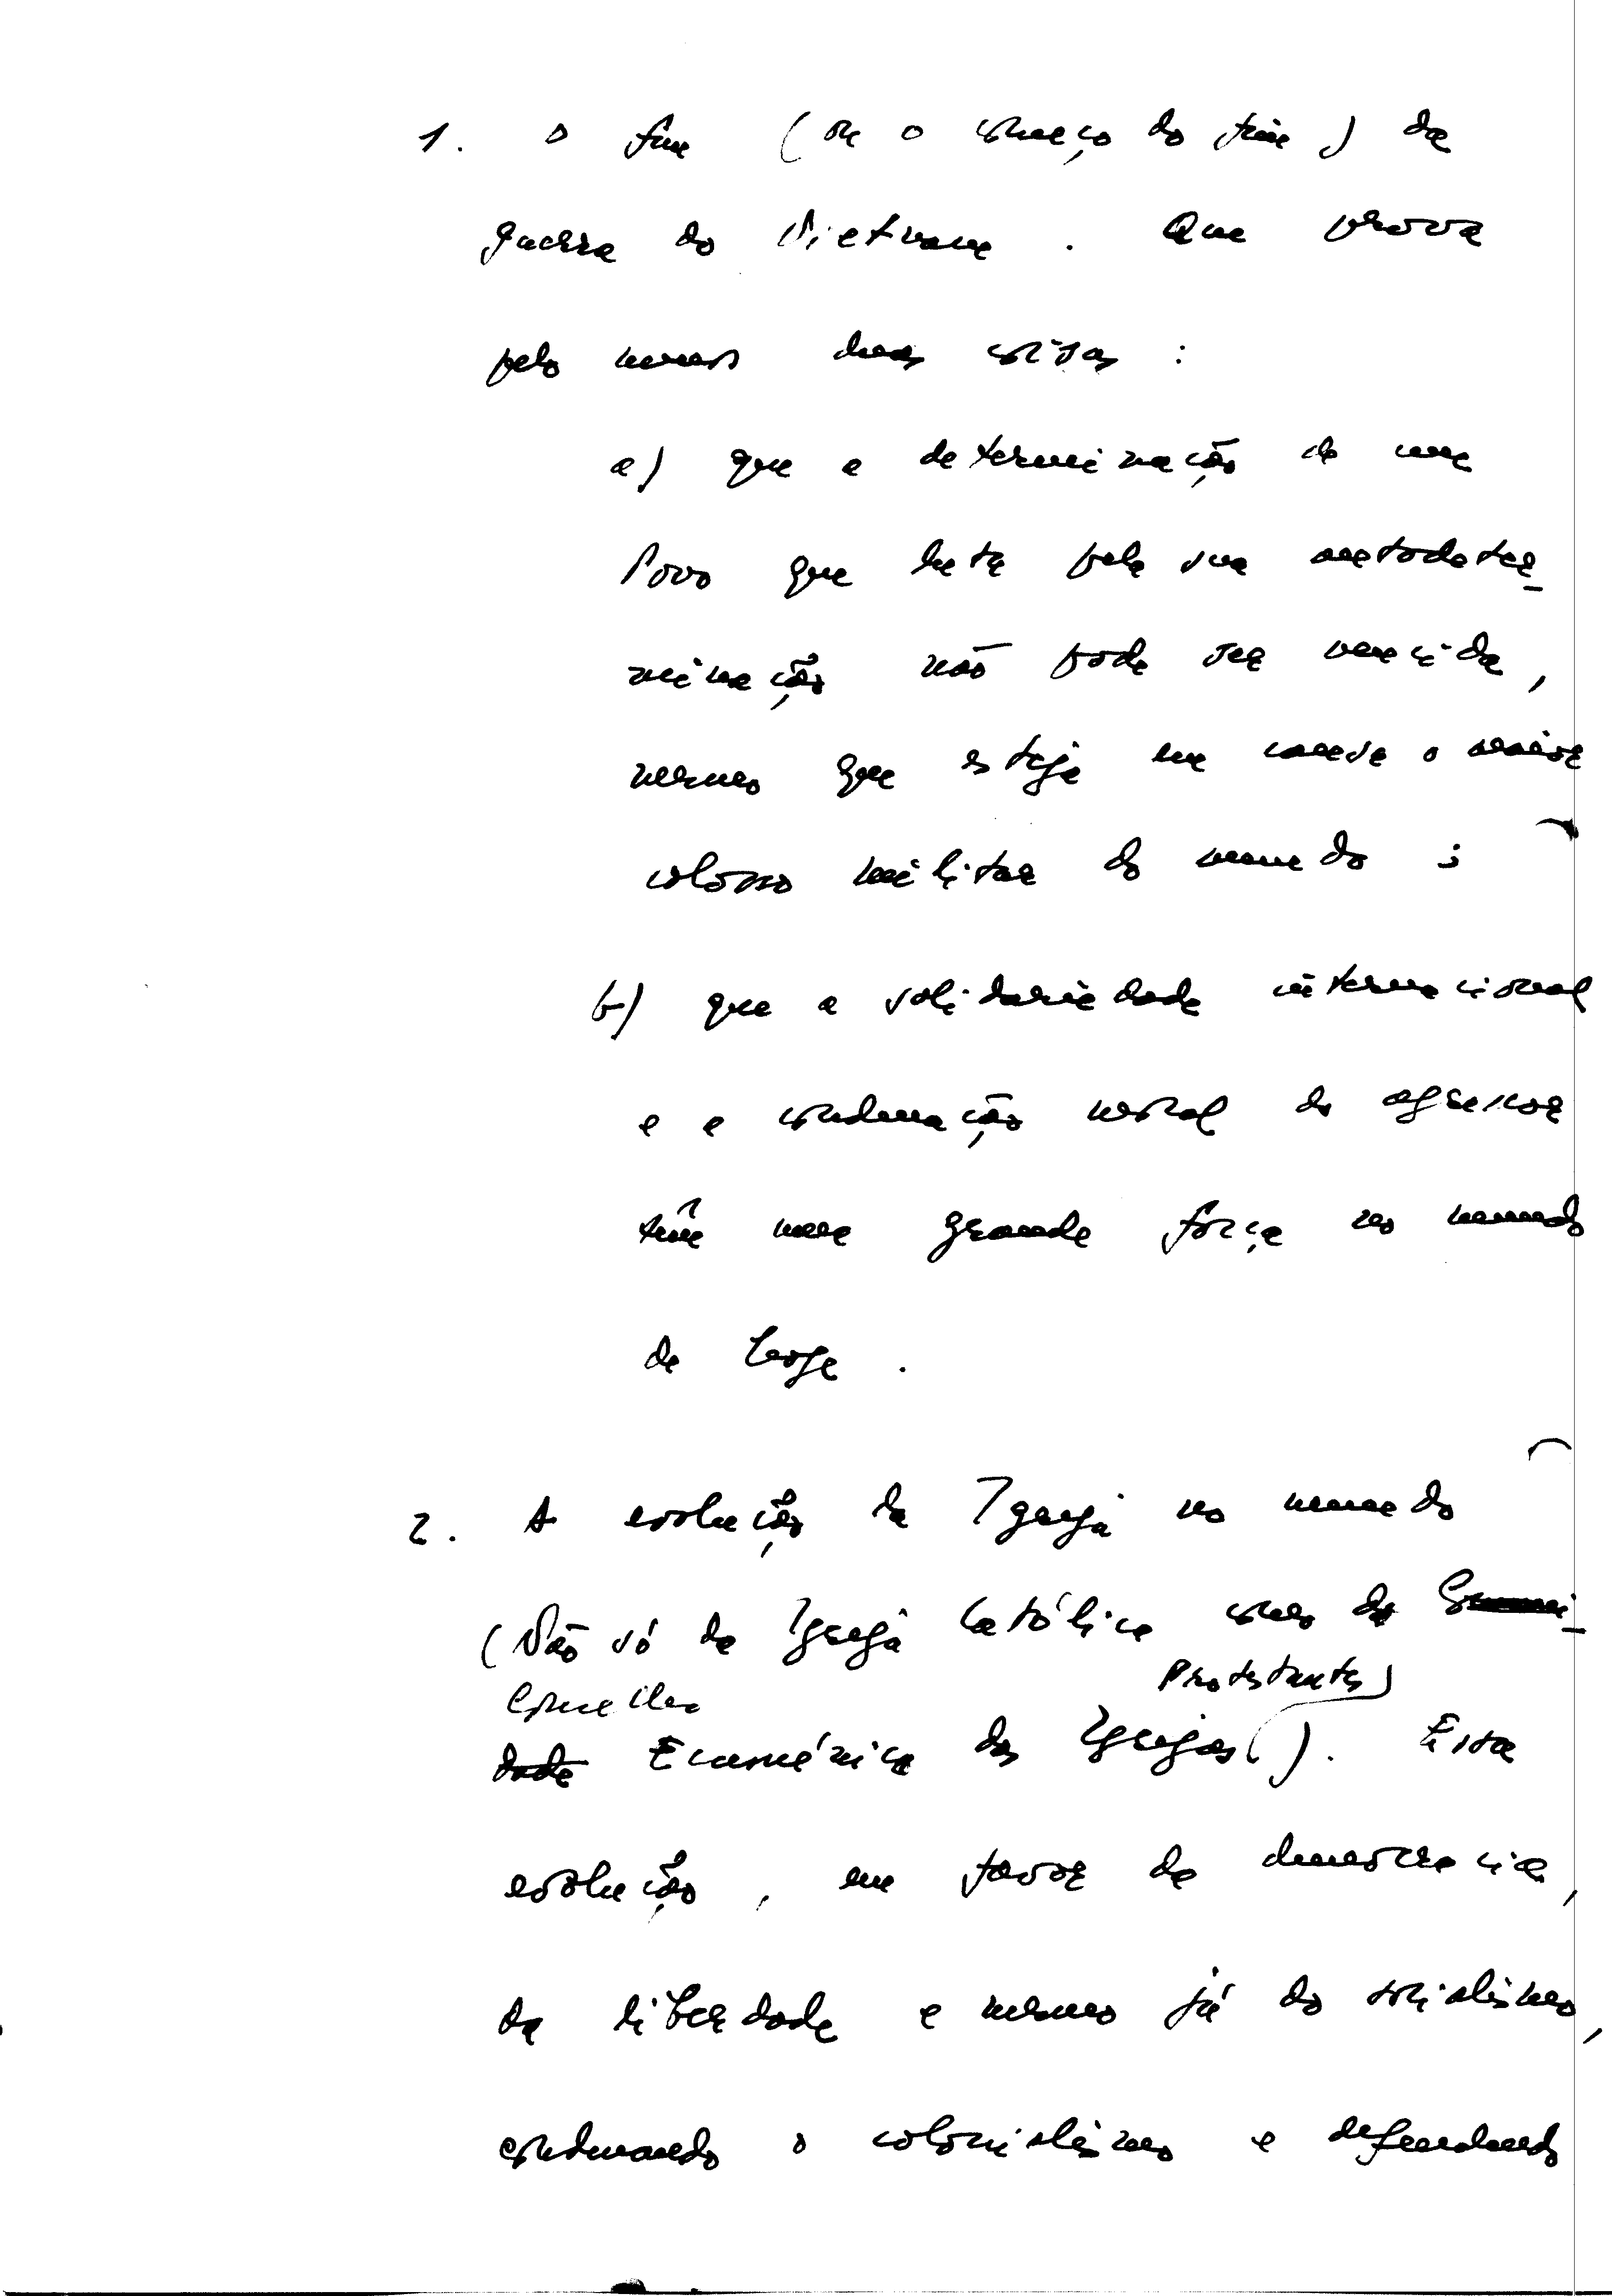 1. O fim (ou o começo do fim) da
guerra do Vietname. Que prova
pelo menos duas coisas:
a) que a determinação de um
Povo que luta pela sua autodeter-
minação não pode ser vencida,
mesmo que esteja em causa o maior
colosso militar do mundo;
b) que a solidariedade internacional
e a condenação moral do agressor
têm uma grande força no mundo
de hoje.
2. A evolução da Igreja no mundo
(Não só da Igreja Católica como do
Conselho Protestantes)
dade Ecuménico das Igrejas( ). Essa
evolução, em favor da democracia,
da liberdade e mesmo já do socialismo,
condenando o colonialismo e defendendo